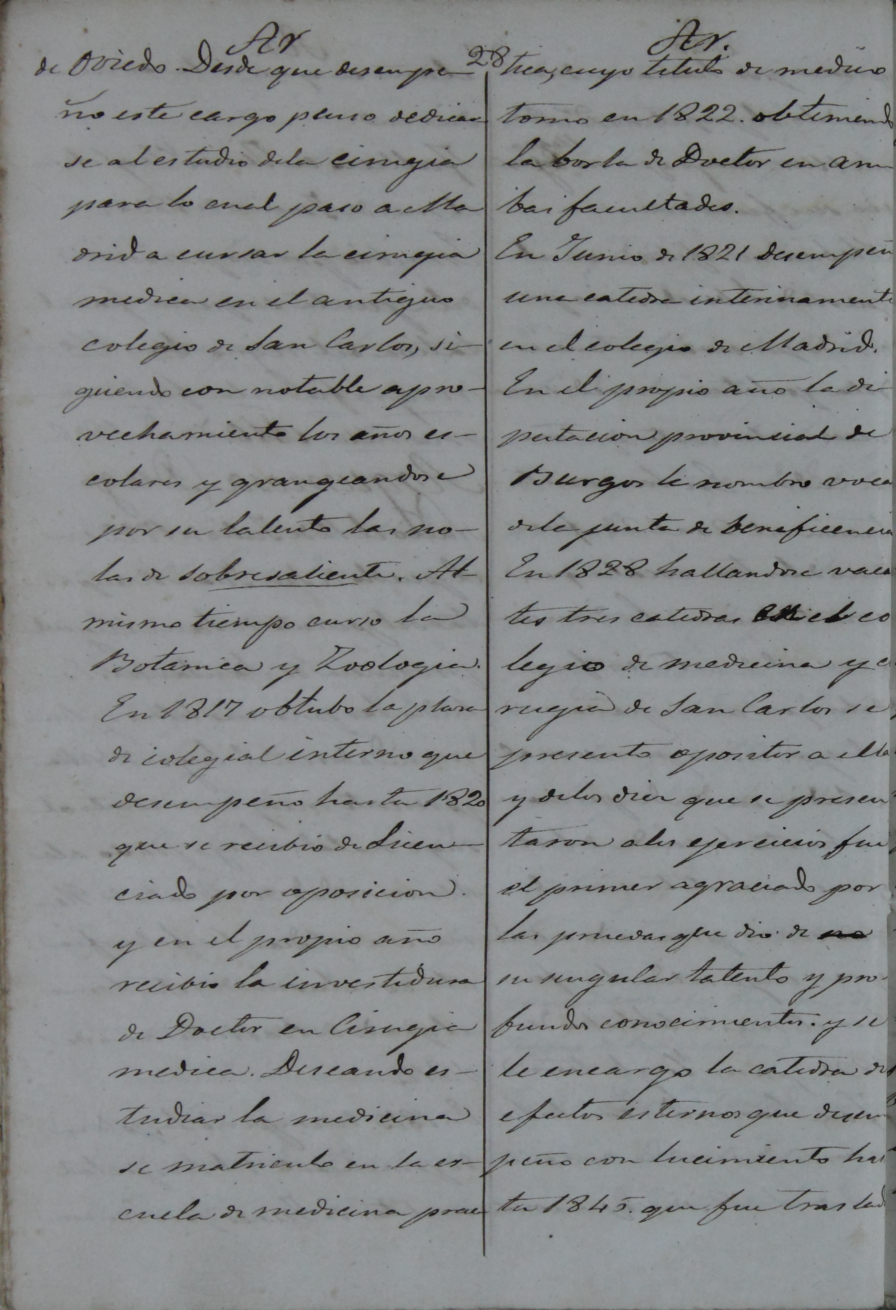 Ar
28
Ar.
de Oviedo. Desde que desempe-
ño este cargo penso dedicar
se al estudio dela cirugia
para lo cual paso a Ma
drid a cursar la cirugia
medica en el antiguo
colegio de San Carlos, si-
guiendo con notable apro-
vechamiento los años es-
colares y grangeandose
por su talento las no-
tas de sobresaliente. Al
mismo tiempo curso la
Botanica y Zoologia.
En 1817 obtubo la plaza
de colegial interno que
desempeño hasta 1820
que se recibio de Licen-
ciado por oposicion.
y en el propio año
recibio la investidura
de Doctor en Cirugia
medica. Deseando es-
tudiar la medicina
se matriculo en la es-
cuela de medicina prac
tica, cuyo titulo de medico
tomo en 1822. obteniendo
la borla de Doctor en am
bas facultades.
En Junio de 1821 desempeñ
una catedra interinamente
en el colegio de Madrid.
En el propio año la di
putacion provincial de
Burgos le nombro voca
dela junta de beneficencia
En 1828 hallandose vacan
tes tres catedras en el co
legio de medicina y ci
rugia de San Carlos se
presento opositor a ellas
y delos diez que se presen
taron alos ejercicios fue
el primer agraciado por
las pruevas que dio de
su singular talento y pro
fundos conocimientos. y se
le encargo la catedra de
efectos esternos que desem
peño con lucimiento has
ta 1845. que fue traslad